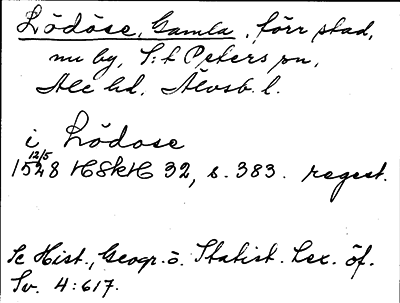 Lödöse, Gamla, förr stad,
nu by, S:t Peters sn,
Ale hd, Älvsb. l.
i Lödose
12/5
1528 HSkH 32, s. 383. regest.
Se Hist., Geogr. o. Statist. Lex. öf.
Sv. 4:617.